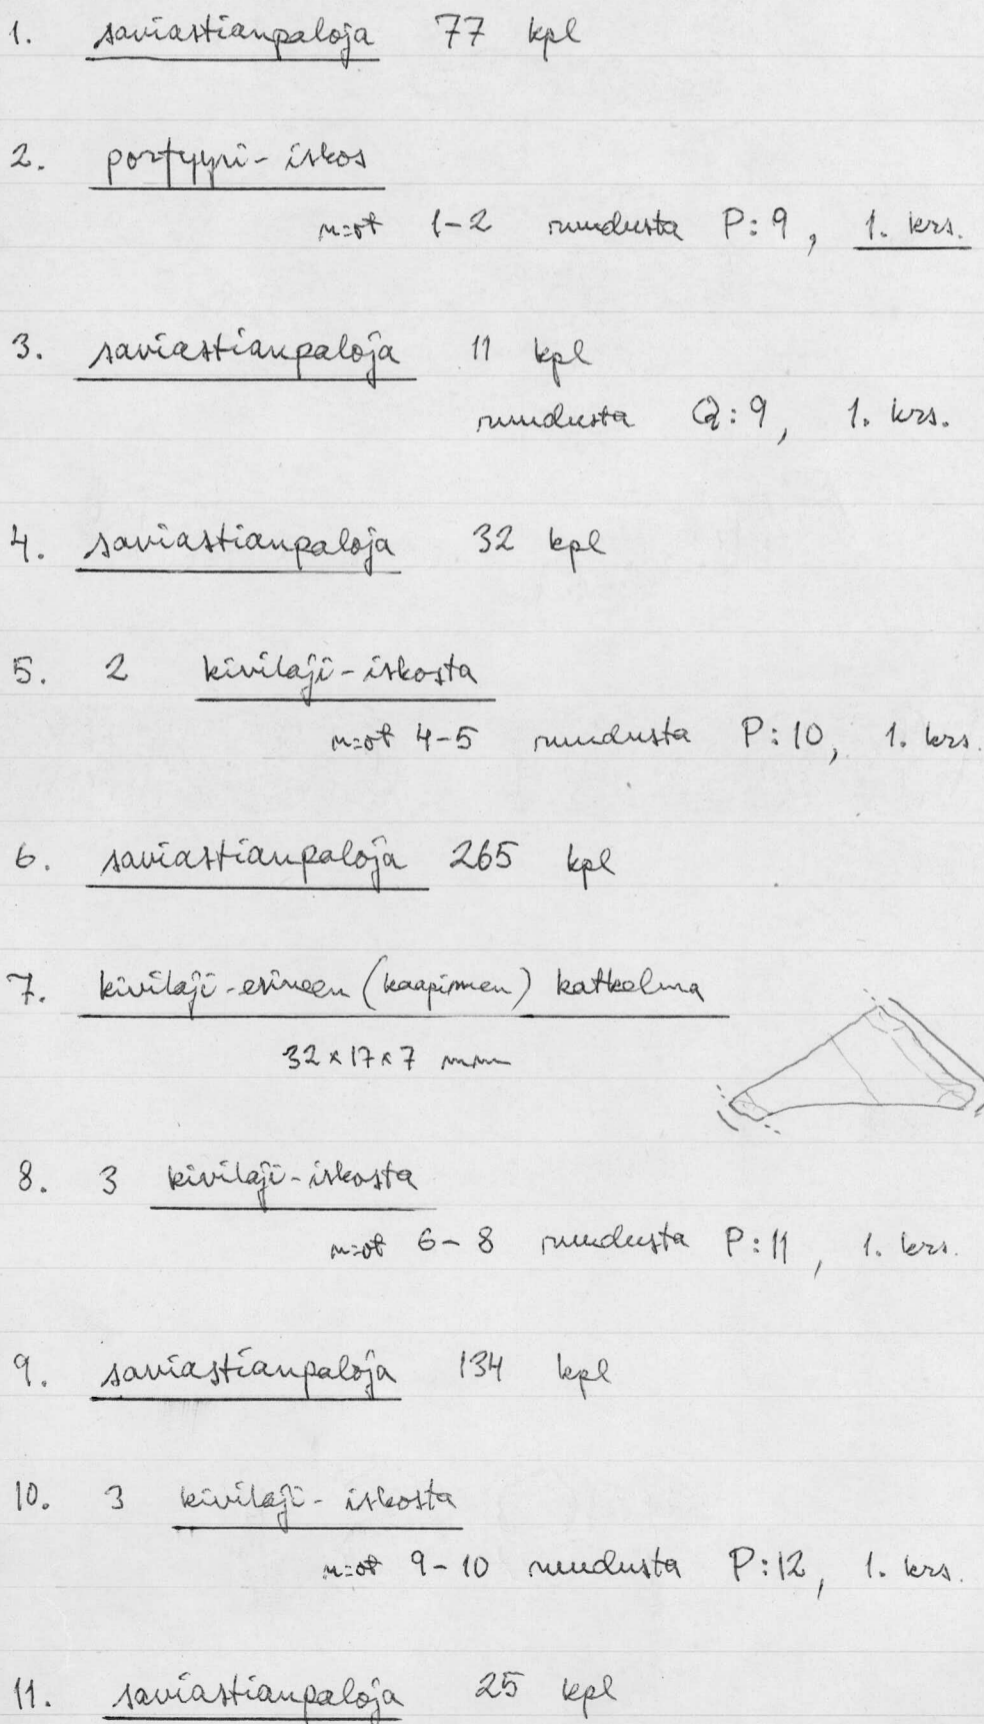 1. saviastianpaloja 77 kpl
2. porfyyri-iskos
n:ot 1-2 ruudusta P:9, 1. krs.
3. saviastianpaloja 11 kpl
ruudusta Q:9, 1. krs.
4. saviastianpaloja 32 kpl
5. 2 kivilaji-iskosta
n:ot 4-5 ruudusta P:10, 1. krs.
6. saviastianpaloja 265 kpl
7. kivilaji-esineen (kaapimen) katkelma
32x17x7 mm
8. 3 kivilaji-iskosta
n:ot 6-8 ruudusta P:11, 1. krs.
9. saviastianpaloja 134 kpl
10. 3 kivilaji-iskosta
n:ot 9-10 ruudusta P:12, 1. krs.
11. saviastianpaloja 25 kpl